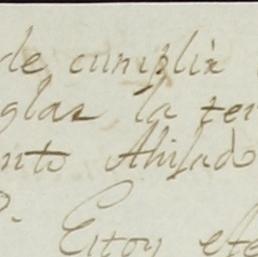 de cumplir
glar la ter
nto Ahijado
Estoy efe